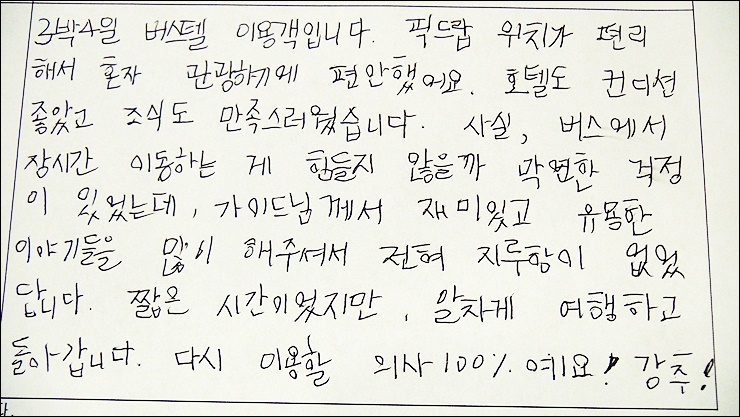 3박4일 버스텔 이용객입니다. 픽드랍 위치가 편리
해서 혼자 관광하기에 편안했어요. 호텔도 컨디션
좋았고 조식도 만족스러웠습니다. 사실, 버스에서
장시간 이동하는 게 힘들지 않을까 막연한 걱정
이 있었는데, 가이드님께서 재미있고 유용한
이야기들을 많이 해주셔서 전혀 지루함이 없었
답니다. 짧은 시간이었지만, 알차게 여행하고
돌아갑니다. 다시 이용할 의사 100% 예요! 강추!
다.